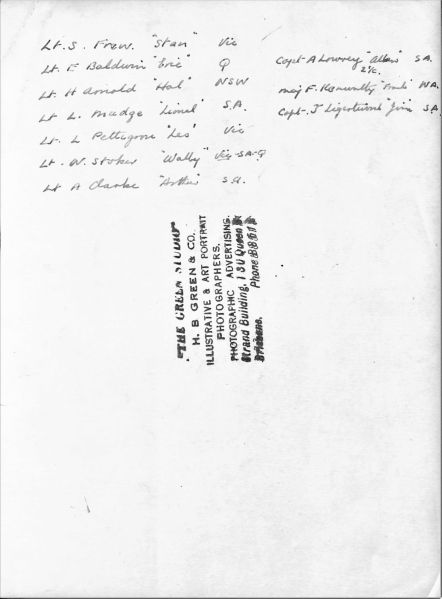 Lt. S. Frew. "Stan" Vic
Lt. E Baldwin "Eric" Q
Lt. H Arnold "Hal" NSW
Lt. L. Madge "Lionel" S.A.
Lt. L Pettigrove "Les" Vic
Lt. W. Stokes "Wally" Vic-SA-Q
Lt A Clarke "Arthur" S.A.
Capt A Lowrey "Allan" S.A.
2i/c.
Maj F. "Frank" WA.
Capt. J "Jim" SA
"THE GREEN STUDIO"
H. B GREEN & CO.
ILLUSTRATIVE & ART PORTRAIT
PHOTOGRAPHERS.
PHOTOGRAPHIC ADVERTISING.
Strand Building, Queen
Phone
Brisbane.